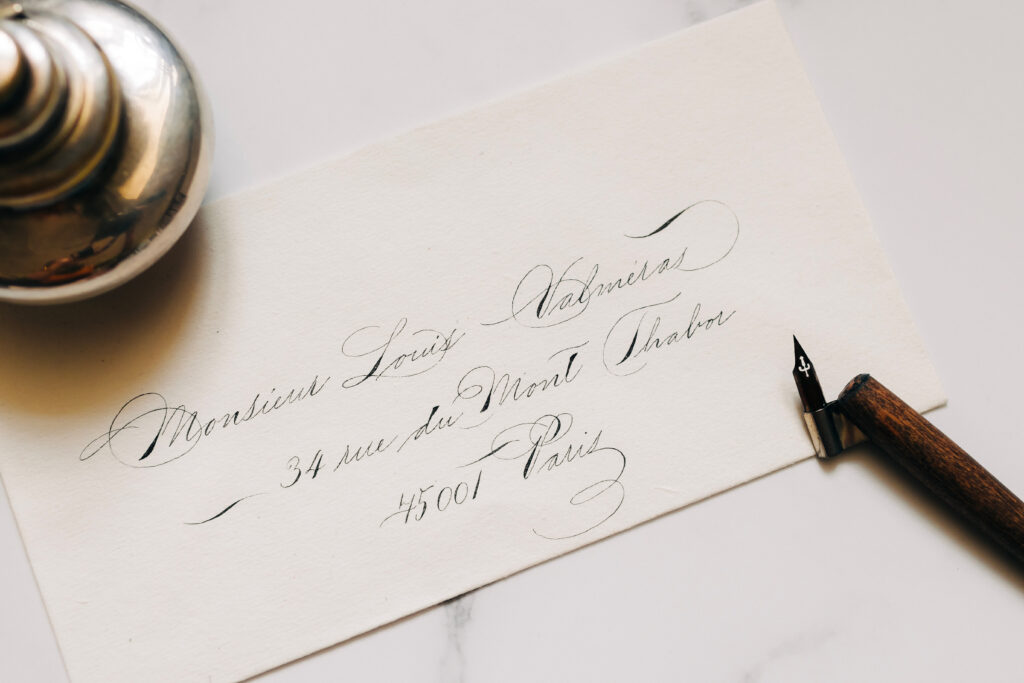 Monsieur Louis Valméras
34 rue du Mont Thabor
75001 Paris